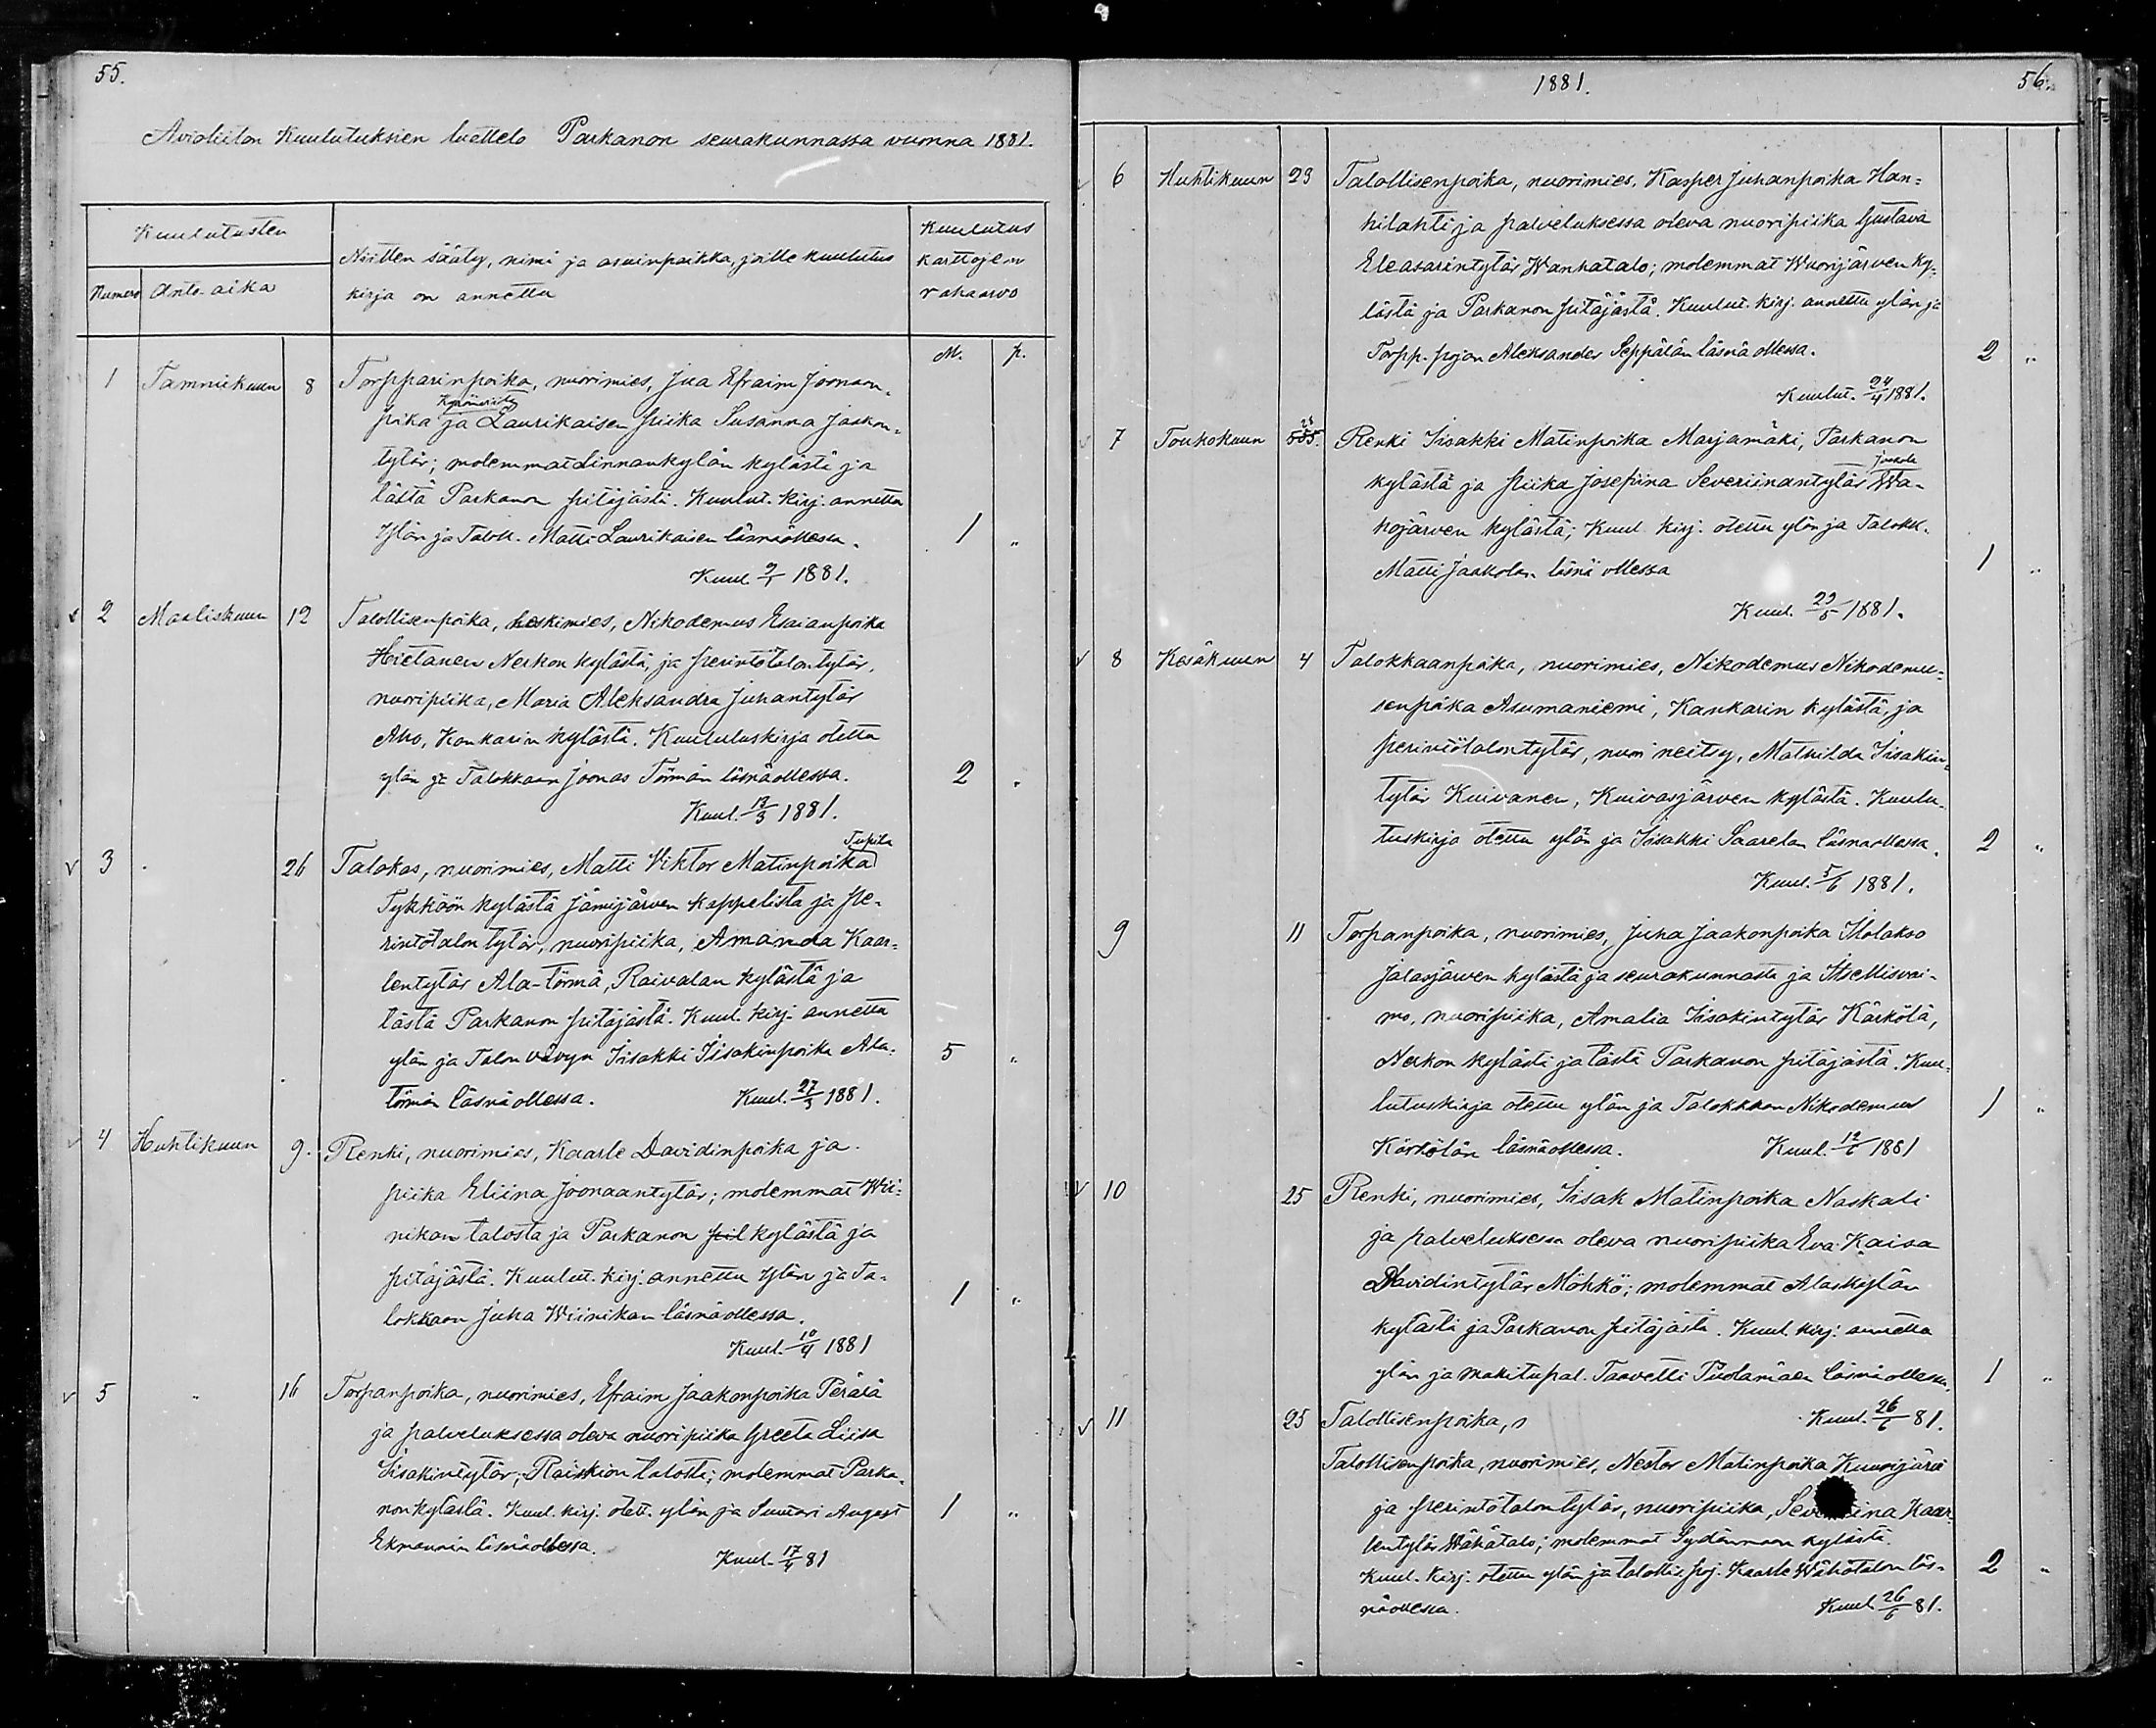 55.
Avioliiton Kuulutuksien luettelo Parkanon seurakunnassa vuonna 1881.
Kuulutusten
Numero
Anto-aika
Niitten sääty, nimi ja asuinpaikka, joille kuulutus
kirja on annettu
Kuulutus
karttojen
rahaarvo
M. p.
1 Tammikuun 8 Torpparinpoika, nuorimies, Jua Efraim Joonaan-
poika ja Laurikaisen piika Susanna Jaakon-
tytär; molemmat Linnankylän kylästä ja
tästä Parkanon pitäjästä. Kuulut. kirj. annettu
Ylön ja Taloll. Matti Laurikaisen läsnäollessa. 1 "
Kuul. 9/1 1881.
2 Maaliskuun 12 Talollisenpoika, leskimies, Nikodemus Esaianpoika
Hietanen Nerkon kylästä, ja perintötalon tytär,
nuoripiika, Maria Aleksandra Juhantytär
Aho, Kankarin kylästä. Kuulutuskirja otettu
ylön ja Talokkaan Joonas Törmän läsnäollessa. 2 "
Kuul. 13/3 1881.
3 " 26 Talokas, nuorimies, Matti Viktor Matinpoika Tupila
Tykköön kylästä Jämijärven kappelista ja pe-
rintötalon tytär, nuoripiika, Amanda Kaar-
lentytär Ala-törmä, Raivalan kylästä ja
tästä Parkanon pitäjästä. Kuul. kirj. annettu
ylön ja Talon vävyn Iisakki Iisakinpoika Ala- 5 "
törmän läsnäollessa. Kuul. 27/3 1881.
4 Huhtikuun 9. Renki, nuorimies, Kaarle Davidinpoika ja
piika Eliina Joonaantytär; molemmat Wii-
nikan talosta ja Parkanon pit kylästä ja
pitäjästä. Kuulut. kirj. annettu ylön ja Ta-
lokkaan Juha Wiinikan läsnäollessa. 1 "
Kuul. 10/4 1881
5 " 16 Torpanpoika, nuorimies, Efraim Jaakonpoika Perälä
ja palveluksessa oleva nuoripiika Greeta Liisa
Iisakintytär, Raiskion talosta; molemmat Parka-
non kylästä. Kuul. kirj. otett. ylön ja Suutari August 1 "
Ekmannin läsnäollessa. Kuul. 17/4 81
1881. 56.
6 Huhtikuun 23 Talollisenpoika, nuorimies, Kasper Juhanpoika Han-
hilahti ja palveluksessa oleva nuoripiika Gustava
Eleasarintytär Wanhatalo; molemmat Wuorijärven ky-
lästä ja Parkanon pitäjästä. Kuulut. kirj. annettu ylön ja
Torpp. pojan Aleksander Seppälän läsnä ollessa. 2 "
Kuulut. 24/4 1881.
7 Toukokuun 28 Renki Iisakki Matinpoika Marjamäki, Parkanon
kylästä ja piika Josefiina Severiinantytär Jaakola Wa-
hojärven kylästä; Kuul. kirj. otettu ylön ja Talokk.
Matti Jaakolan läsnä ollessa 1 "
Kuul. 29/5 1881.
8 Kesäkuun 4 Talokkaanpoika, nuorimies, Nikodemus Nikodemu-
senpoika Asumaniemi, Kankarin kylästä, ja
perintötalontytär, nuori neitsy, Mathilda Iisakin-
tytär Kuivanen, Kuivasjärven kylästä. Kuulu-
tuskirja otettu ylön ja Iisakki Saarelan läsnäollessa. 2 "
Kuul. 5/6 1881.
9 11 Torpanpoika, nuorimies, Juha Jaakonpoika Ilolakso
Jalasjärven kylästä ja seurakunnasta ja Itsellisvai-
mo, nuoripiika, Amalia Iisakintytär Kärkölä,
Nerkon kylästä ja tästä Parkanon pitäjästä. Kuu-
lutuskirja otettu ylön ja Talokkaan Nikodemus 1 "
Kärkölän läsnäollessa. Kuul. 12/6 1881
10 25 Renki, nuorimies, Iisak Matinpoika Naskali
ja palveluksessa oleva nuoripiika Eva Kaisa
Davidintytär Möhkö; molemmat Alaskylän
kylästä ja Parkanon pitäjästä. Kuul. kirj. annettu
ylön ja mäkitupal. Taavetti Puolamäen läsnäollessa. 1 "
11 25 Talollisenpoika, n Kuul. 26/6 81.
Talollisenpoika, nuorimies, Nestor Matinpoika Kuusijärvi
ja perintötalon tytär, nuoripiika, Kaar-
lentytär Wähätalo; molemmat Sydänmaan kylästä.
Kuul. kirj. otettu ylön ja talollis poj. Kaarle Wähätalon läs- 2 "
näollessa. Kuul 26/6 81.